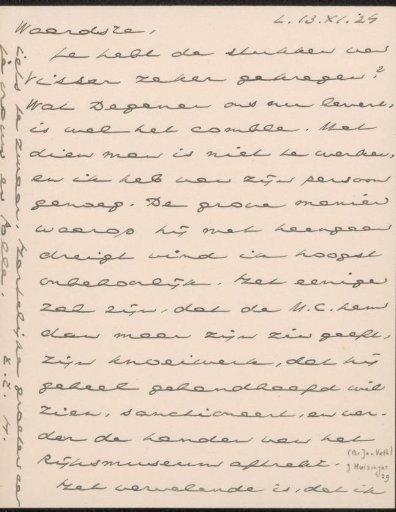 L. 13.XI.'29
Waardste,
Je hebt de stukken van
Visser zeker gekregen?
Wat Degener ons nu levert,
is wel het comble. Met
dien man is niet te werken,
en ik heb van zijn persoon
genoeg. De grove manier
waarop hij met heengaan
dreigt vind ik hoogst
onbehoorlijk. Het eenige
zal zijn, dat de M.C. hem
dan maar zijn zin geeft,
zijn knoeiwerk, dat hij
geheel gehandhaafd wil
zien, sanctioneert, en ver-
der de handen van het
Rijksmuseum aftrekt.
Het vervelende is, dat ik
(Br. Jan Veth)
J. Huizinga
29
iets te zwaar. Hartelijke groeten
je vrouw en
t.t. H.